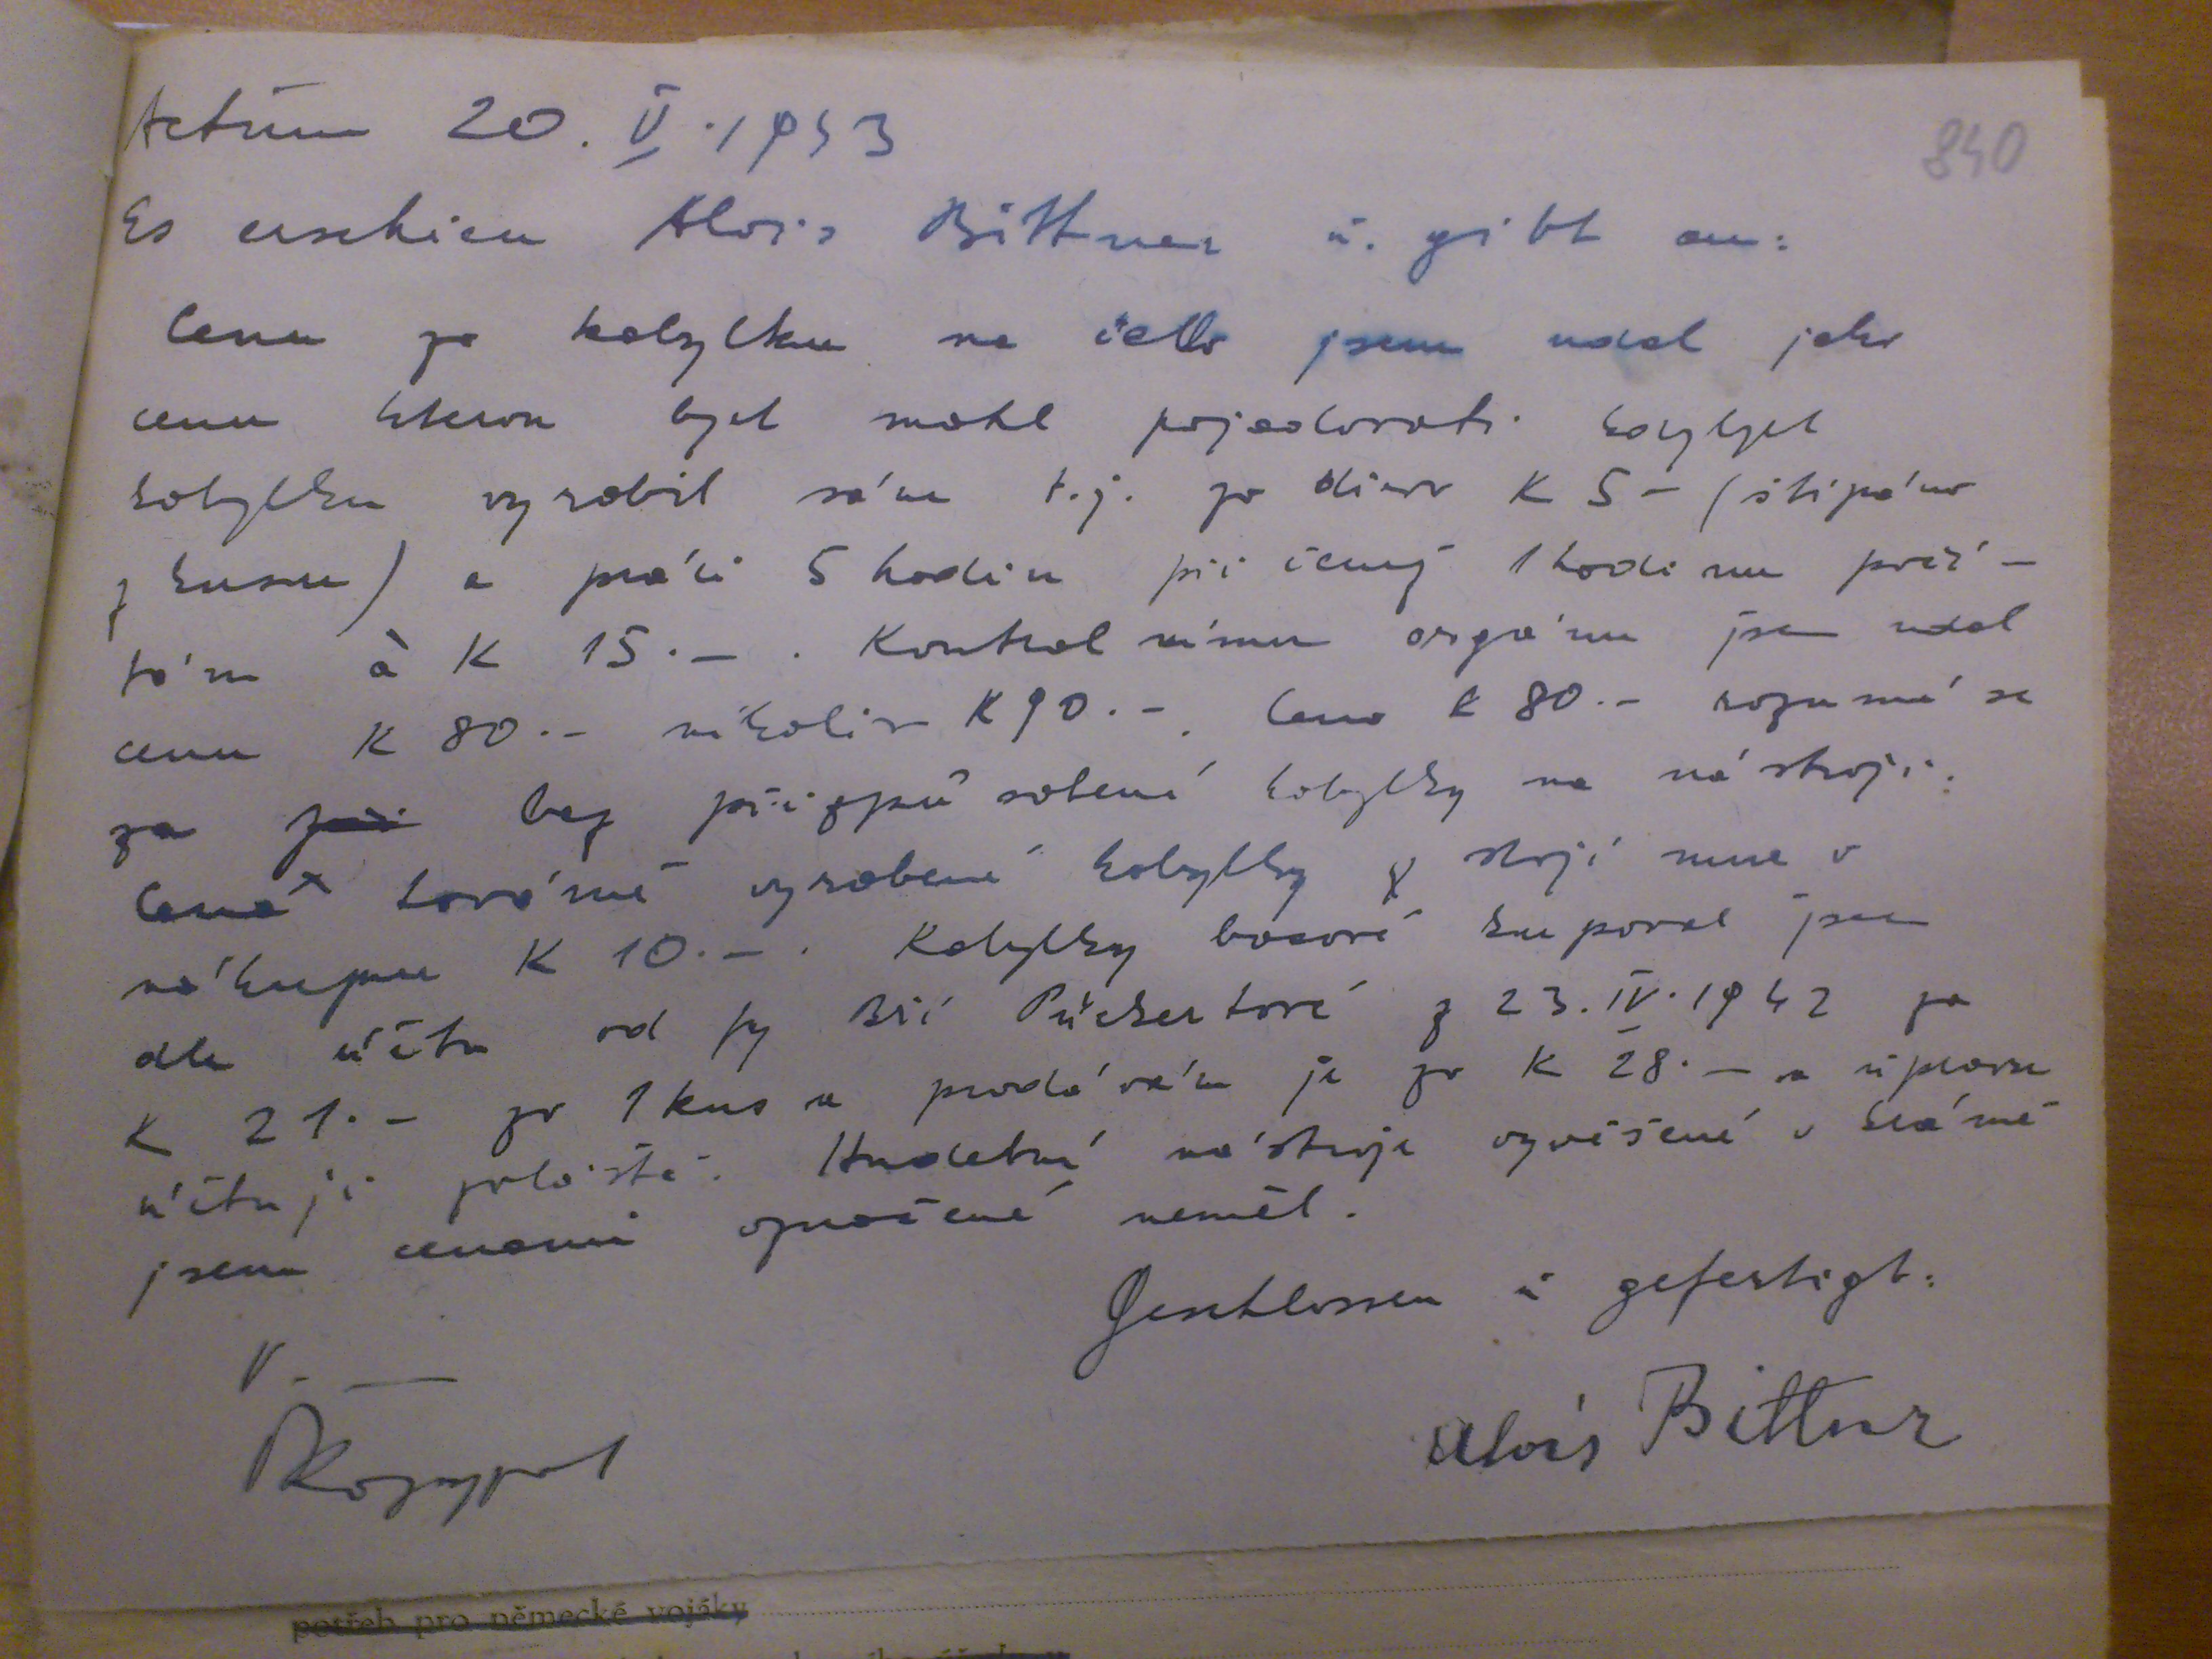 Actum 20. V. 1943
840
Es erschien Alois Bittner u. gibt an:
Cenu za kobylku na čello jsem udal jako
cenu kterou bych mohl požadovati kdybych
kobylku vyrobil sám t.j. za dřevo K 5 – (štípáno
z kusu) a práci 5 hodin při čemž 1 hodinu počí-
tám à K 15.– . Kontrolnímu orgánu jsem udal
cenu K 80.– nikoliv K 90.– . Cena K 80.– rozumí se
za bez přizpůsobení kobylky na nástroji.
Cena továrně vyrobené kobylky stojí mne v
nákupu K 10.– . Kobylky basové kupoval jsem
dle účtu od fy Bří Püchertové z 23. IV. 1942 za
K 21.– za 1 kus a prodávám je za K 28.– a úpravu
účtuji zvláště. Hudební nástroje vyvěšené v krámě
jsem cenami označené neměl.
Geschlossen u gefertigt:
V.
Alois Bittner
potřeb pro německé vojáky